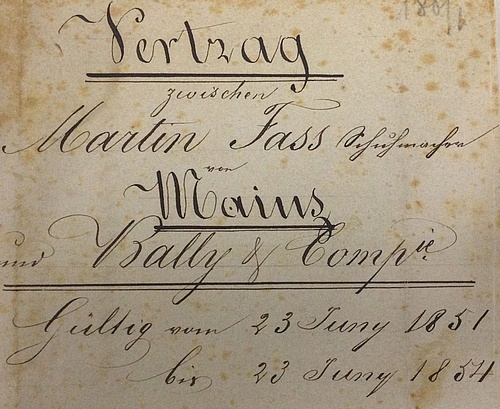 Vertrag
zwischen
Martin Fass Schuhmacher
von
Mainz
und Bally & Compie.
Gültig vom 23 Juny 1851
bis 23 Juny 1854